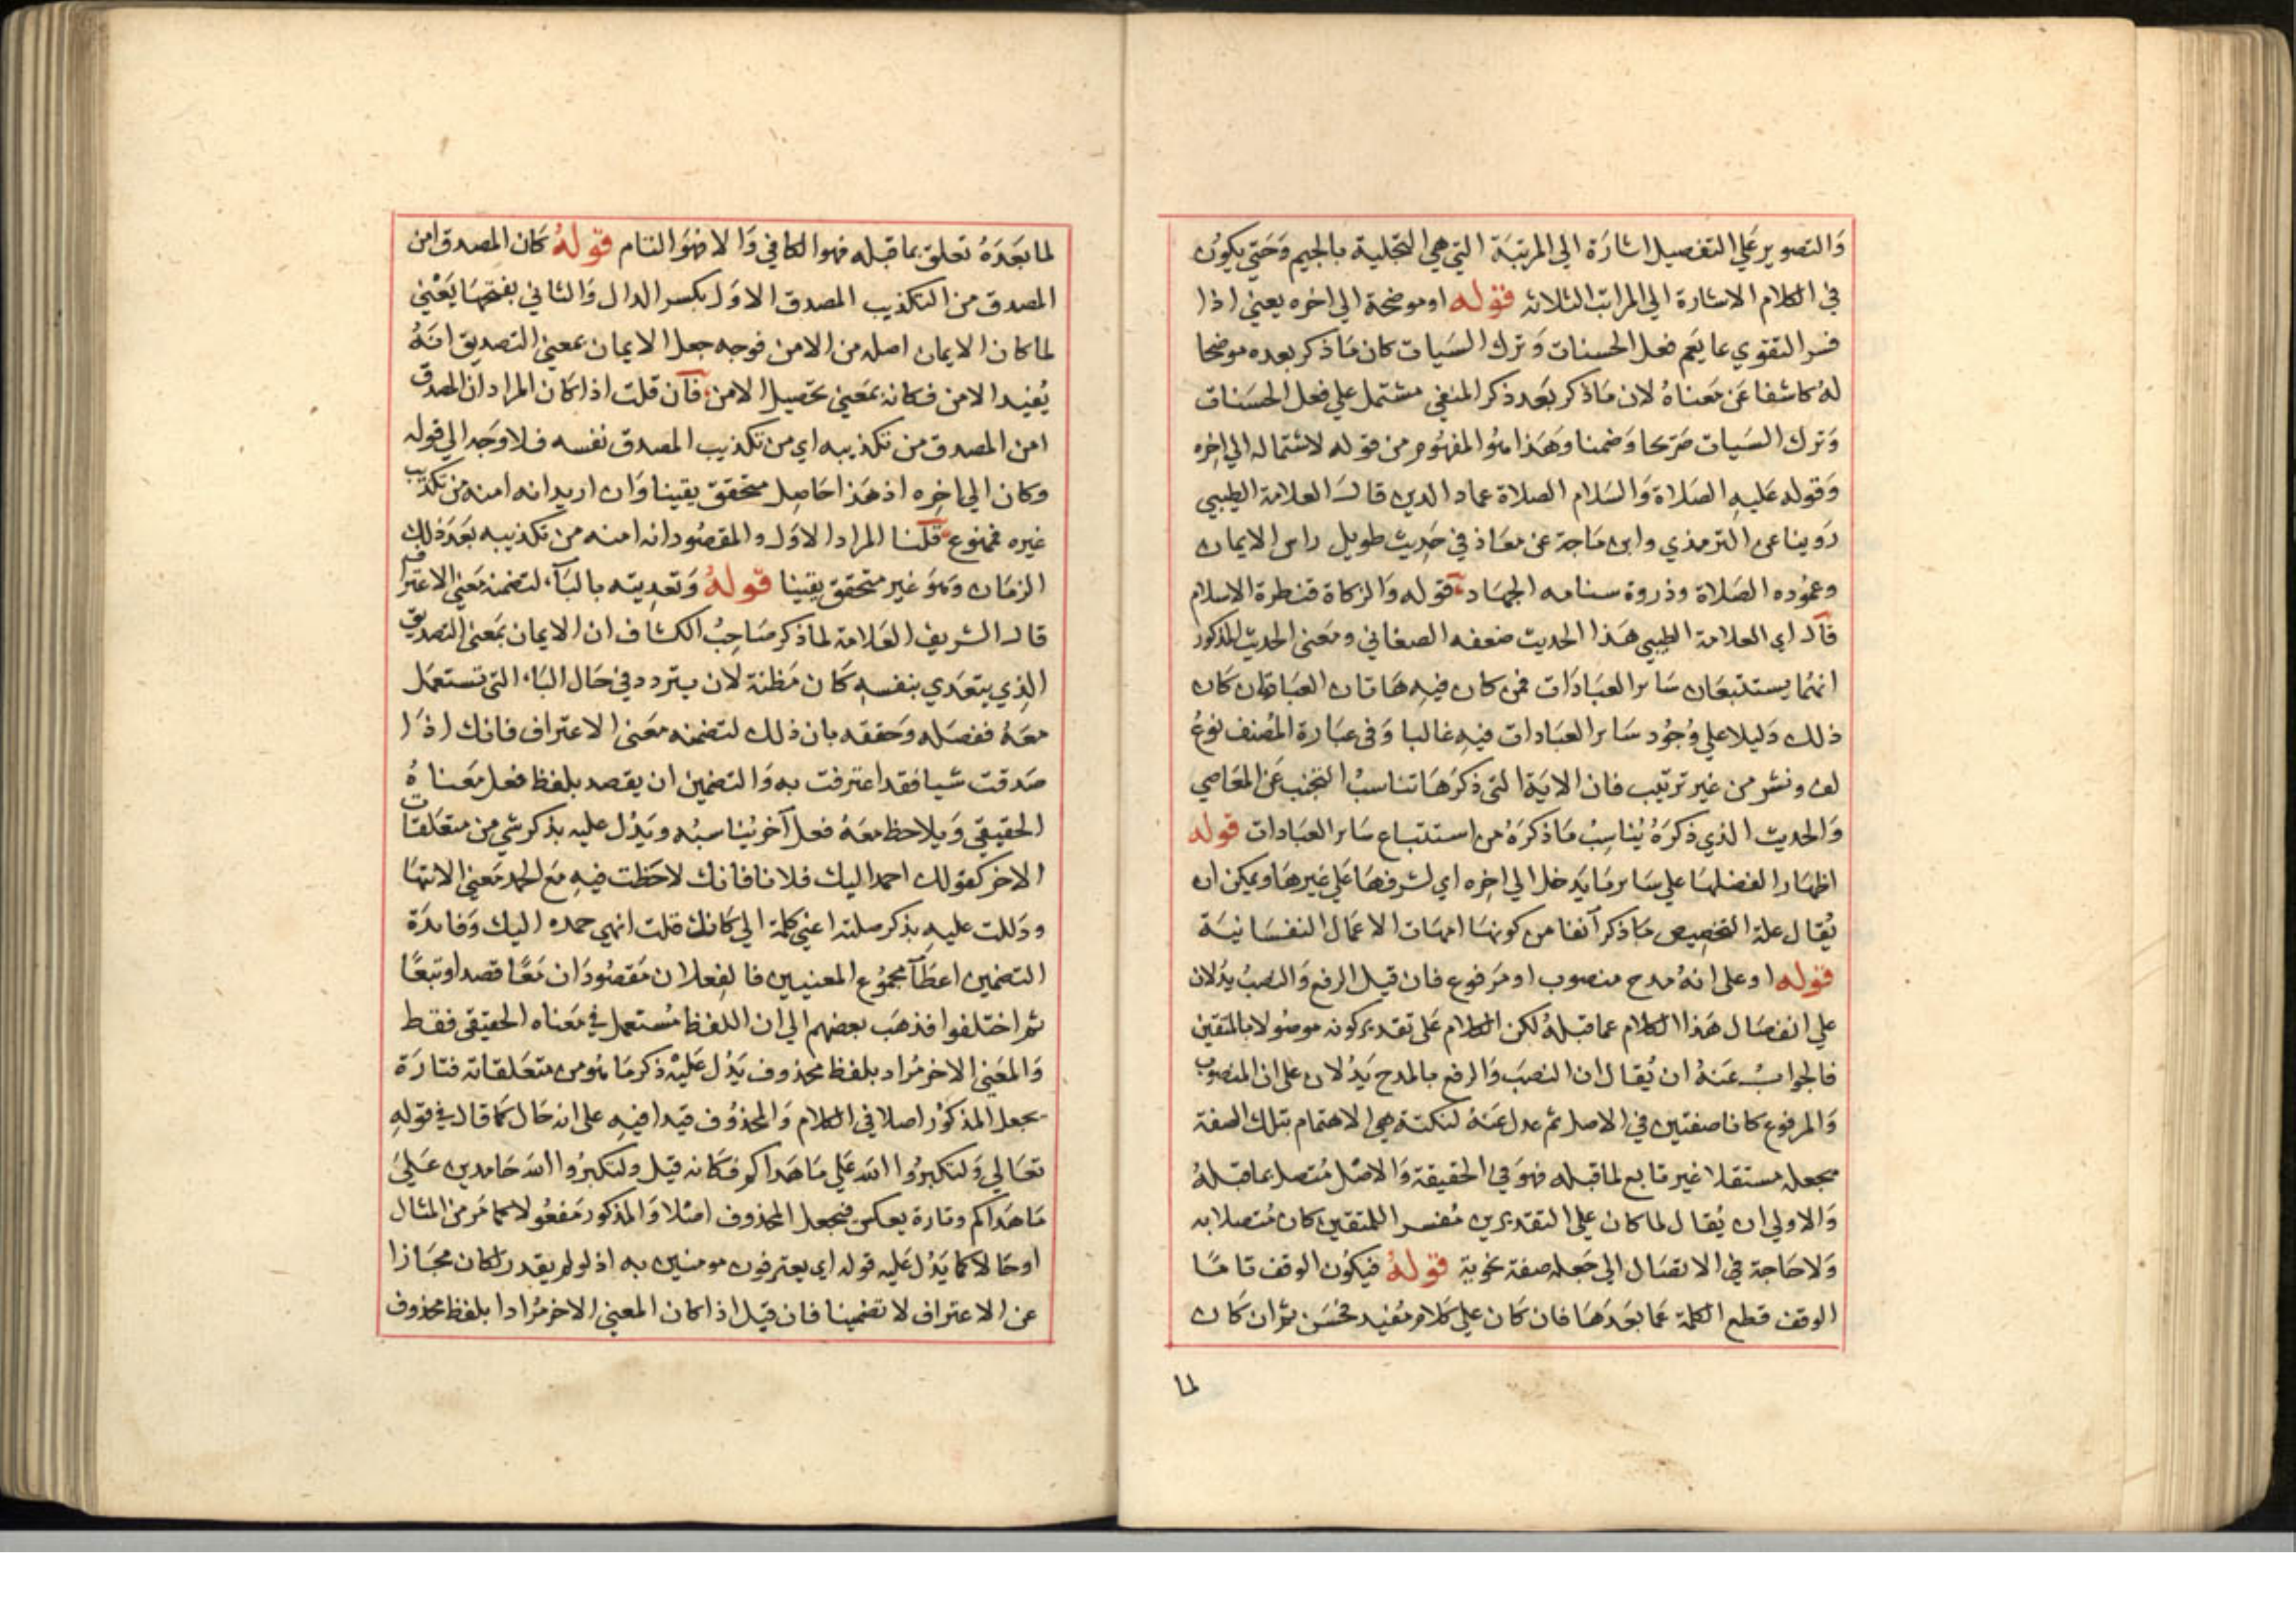 والتصوير علي التفصيل اشارة الي المرتبة التي هي التجلية بالجيم وحتي يكون
في الكلام الاشارة الي المراتب الثلاثه قوله اوموضحة الي اخره يعني اذا
فسر التقوي بما يعم فعل الحسنات وترك السيات كان ما ذكر بعده موضحا
له كاشفا عن معناه لان ما ذكر بعد ذكر المتقي مشتمل علي فعل الحسنات
وترك السيات صريحا وضمنا وهذا هو المفهوم من قوله لاشتماله الي اخره
وقوله عليه الصلاة والسلام الصلاة عماد الدين قال العلامة الطيبي
روينا عن الترمذي وابن ماجة عن معاذ في حديث طويل راس الايمان
وعموده الصلاة وذروة سنامه الجهاد قوله والزكاة قنطرة الاسلام
قال اي العلامة الطيبي هذا الحديث ضعفه الصغاني ومعنى الحديث المذكور
انهما يستتبعان ساير العبادات فمن كان فيه هاتان العبادتان كان
ذلك دليلا علي وجود ساير العبادات فيه غالبا وفي عبارة المصنف نوع
لف ونشر من غير ترتيب فان الاية التي ذكرها تناسب التجنب عن المعاصي
والحديث الذي ذكره يناسب ما ذكره من استتباع ساير العبادات قوله
اظهارا لفضلها علي ساير ما يدخل الي اخره اي لشرفها علي غيرها ويمكن ان
يقال علة التخصيص ما ذكر آنفا من كونها امهات الاعمال النفسانية
قوله اوعلى انه مدح منصوب او مرفوع فان قيل الرفع والنصب يدلان
علي انفصال هذا الكلام عما قبله لكن الكلام على تقدير كونه موصولا بالمتقين
فالجواب عنه ان يقال ان النصب والرفع بالمدح يدلان على ان المنصوب
والمرفوع كانا صفتين في الاصل ثم عدل عنه لنكتة هي الاهتمام بتلك الصفة
فجعله مستقلا غير تابع لما قبله فهو في الحقيقة والاصل متصل بما قبله
والاولي ان يقال لما كان علي التقديرين مفسرا للمتقين كان متصلا به
ولا حاجة في الاتصال الي جعله صفة نحوية قوله فيكون الوقف تاما
الوقف قطع الكلمة عما بعدها فان كان علي كلام مفيد فحسن ثم ان كان
لما
لما بعده تعلق بما قبله فهو الكافي والا فهو التام قوله كان المصدق امن
المصدق من التكذيب المصدق الاول بكسر الدال والثاني بفتحها يعني
لما كان الايمان اصله من الامن فوجه جعل الايمان بمعني التصديق انه
يفيد الامن فكانه بمعني تحصيل الامن فان قلت اذا كان المراد ان المصدق
امن المصدق من تكذيبه اي من تكذيب المصدق نفسه فلا وجه الي قوله
وكان الي اخره اذ هذا حاصل متحقق يقينا وان اريد انه امنه من تكذيب
غيره فممنوع قلنا المراد الاول والمقصود انه امنه من تكذيبه بعد ذلك
الزمان وهو غير متحقق يقينا قوله وتعديته بالباء لتضمنه معني الاعتراف
قال الشريف العلامة لما ذكر صاحب الكشاف ان الايمان بمعني التصديق
الذي يتعدي بنفسه كان مظنة لان يتردد في حال الباء التي تستعمل
معه ففصله وحققه بان ذلك لتضمنه معنى الاعتراف فانك اذا
صدقت شيا فقد اعترفت به والتضمين ان يقصد بلفظ فعل معناه
الحقيقي ويلاحظ معه فعل آخر يناسبه ويدل عليه بذكر شي من متعلقات
الاخر كقولك احمد اليك فلانا فانك لاحظت فيه مع الحمد معني الانتها
ودللت عليه بذكر صلته اعني كلمة الي كانك قلت انهي حمده اليك وفايدة
التضمين اعطآ مجموع المعنيين فالفعلان مقصودان معا قصدا وتبعا
ثم اختلفوا فذهب بعضهم الي ان اللفظ مستعمل في معناه الحقيقى فقط
والمعني الاخر مراد بلفظ محذوف يدل عليه ذكر ما هو من متعلقاته فتارة
يجعل المذكور اصلا في الكلام والمحذوف قيدا فيه على انه حال كما قال في قوله
تعالي ولتكبروا الله علي ما هداكم فكانه قيل ولتكبروا الله حامدين علي
ما هداكم وتارة يعكس فيجعل المحذوف اصلا والمذكور مفعولا كما مر من المثال
اوحالا كما يدل عليه قوله اي يعترفون مومنين به اذ لو لم يقدر لكان مجازا
عن الاعتراف لا تضمينا فان قيل اذا كان المعني الاخر مرادا بلفظ محذوف